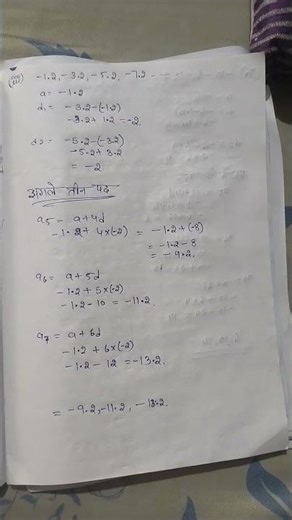 (iii) -1.2, -3.2, -5.2, -7.2
a = -1.2
d₁ = -3.2-(-1.2)
-3.2+1.2 = -2.
d₂ = -5.2-(-3.2)
-5.2+3.2
= -2
अगले तीन पद
a5 = a+4d
-1.2+ 4x(-2) = -1.2+(-8)
= -1.2-8
= -9.2.
a6 = a+5d
-1.2+5x(-2)
-1.2-10 = -11.2
a7 = a+6d
-1.2+6x(-2)
-1.2-12 = -13.2.
= -9.2, -11.2, -13.2.